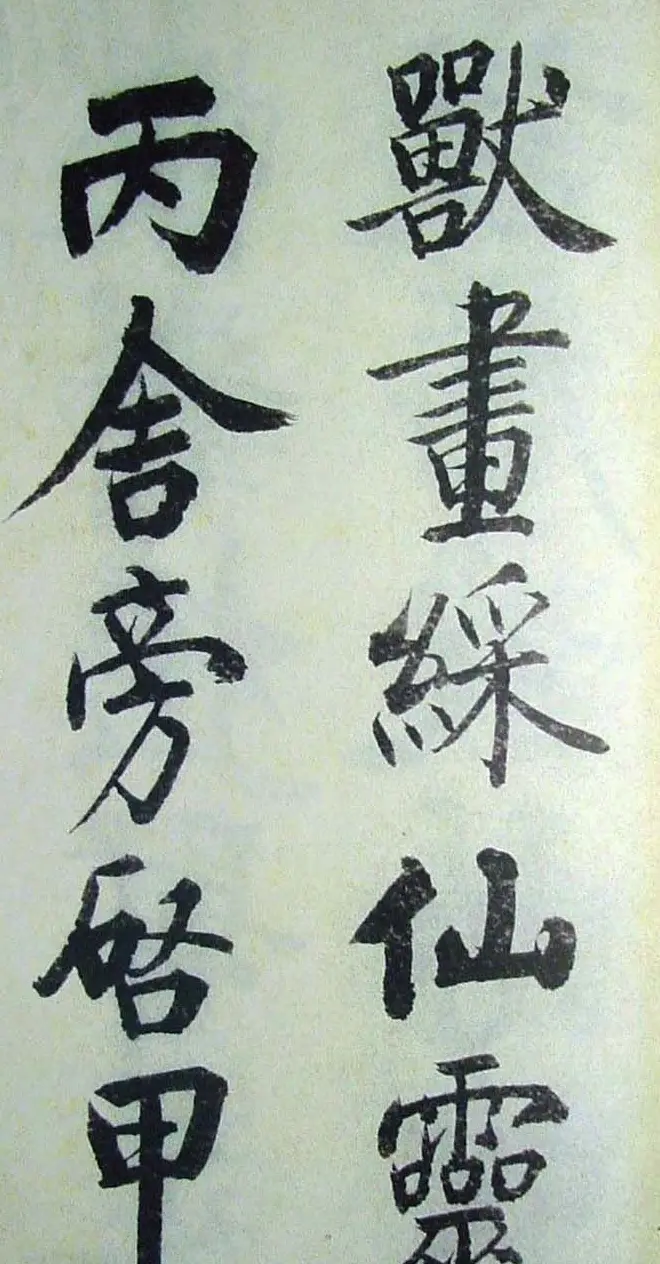 獸畫綵仙靈
丙舍旁啓甲